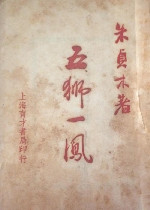 朱貞木著
五狮一鳳
上海育才書局印行